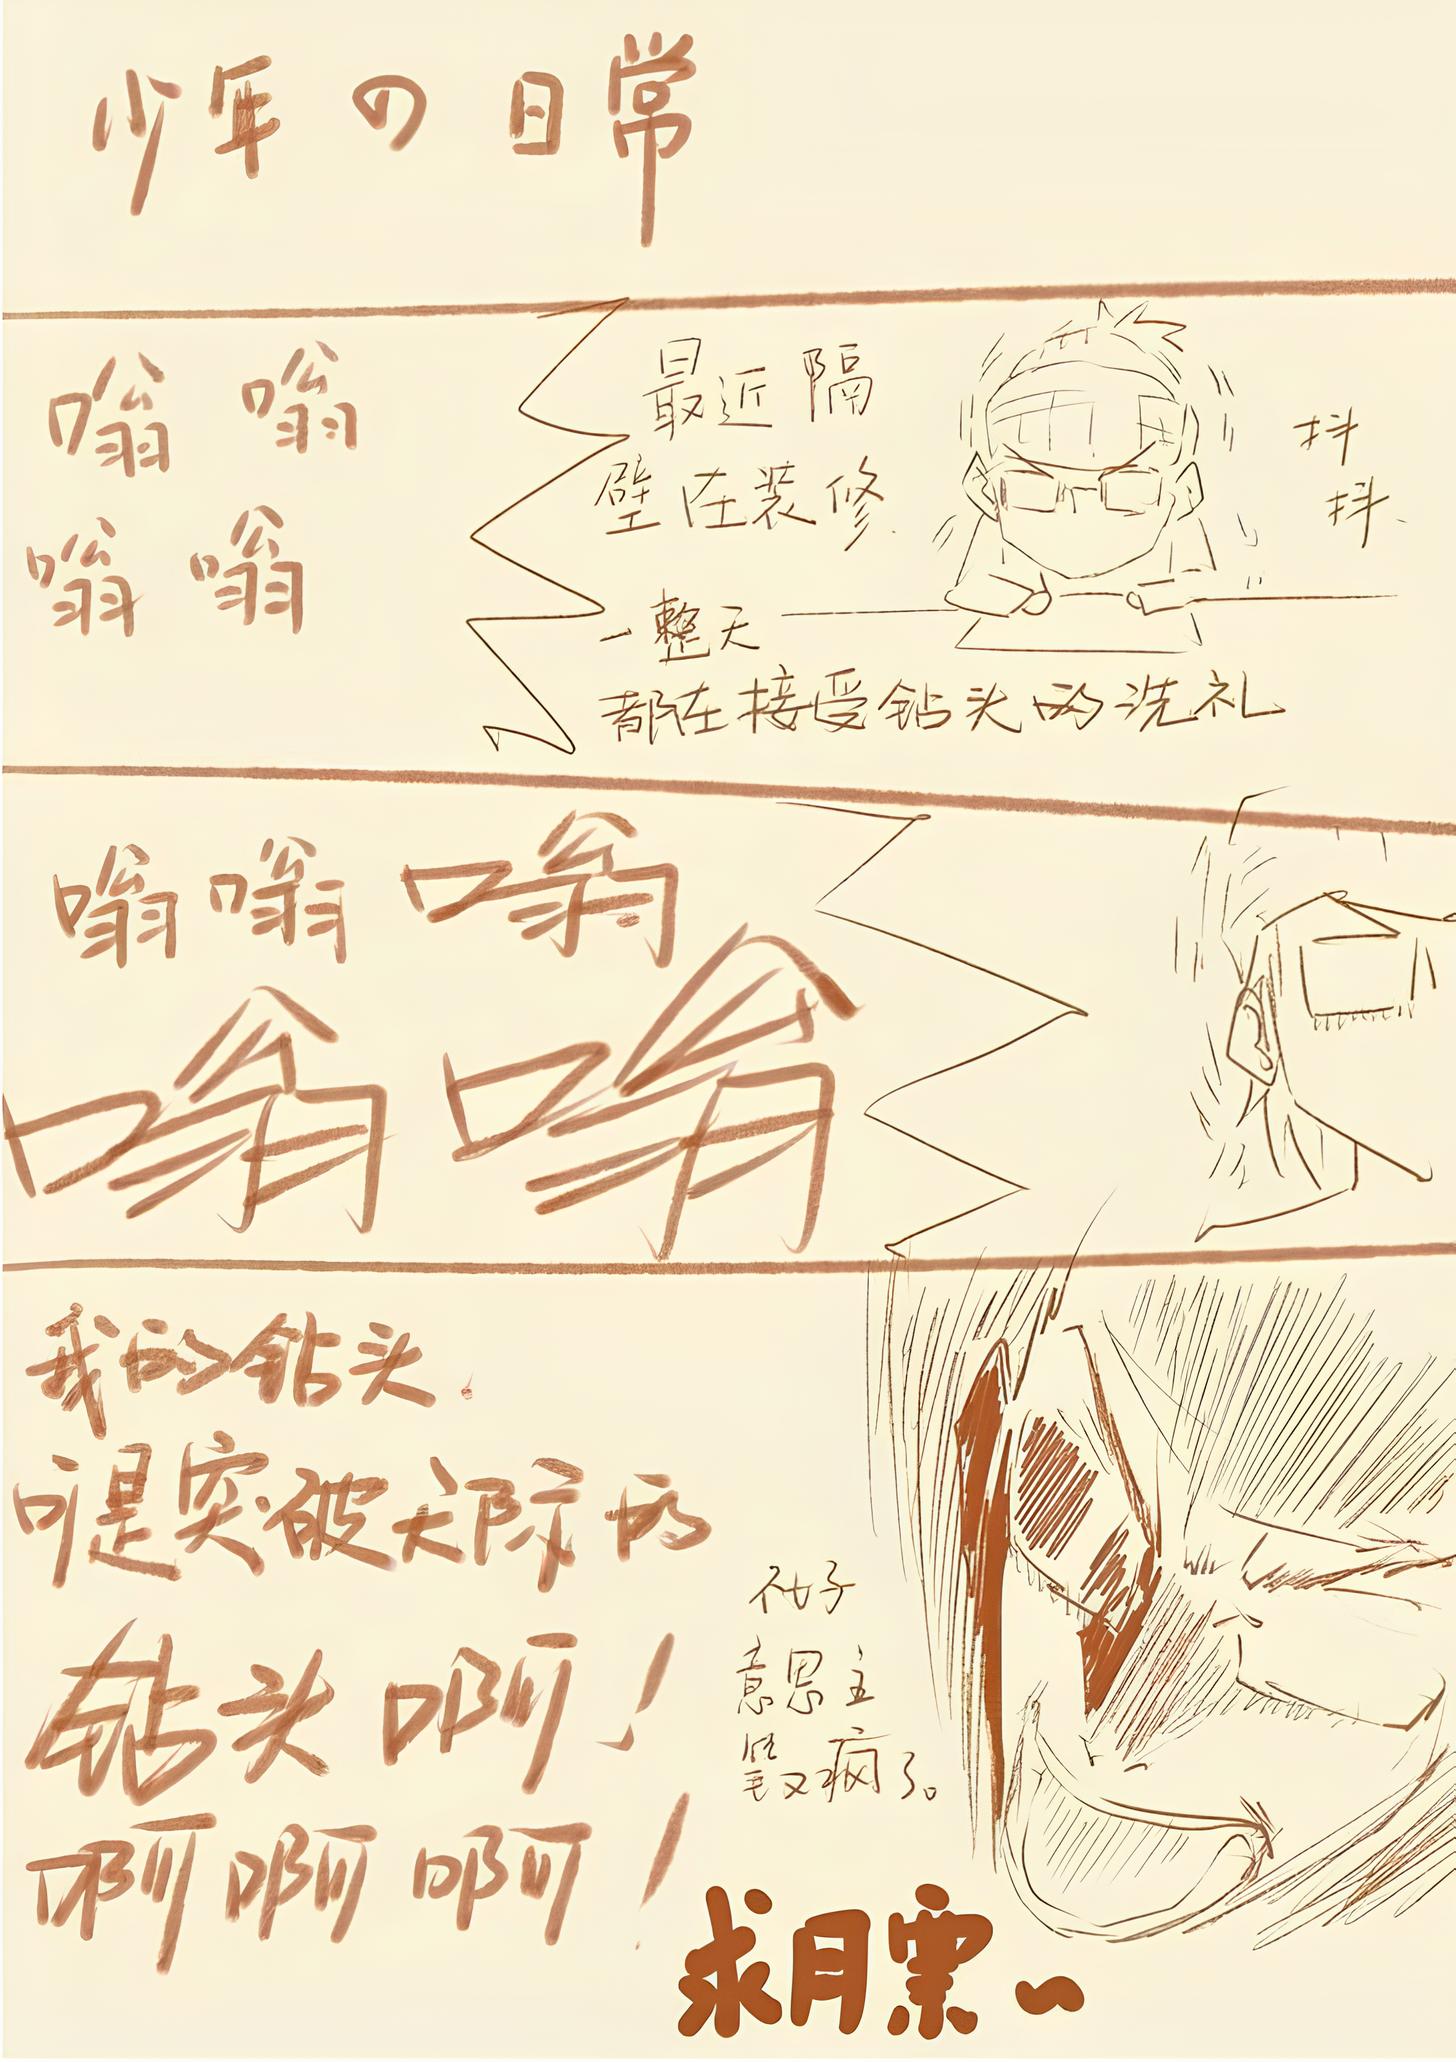 少年の日常
嗡 嗡
嗡 嗡
最近隔
壁在装修
一整天
都在接受钻头的洗礼
抖
抖
嗡 嗡 嗡
嗡 嗡
我的钻头
可是突破天际的
钻头啊！
啊啊啊！
意思主
笔又疯了。
求月票~